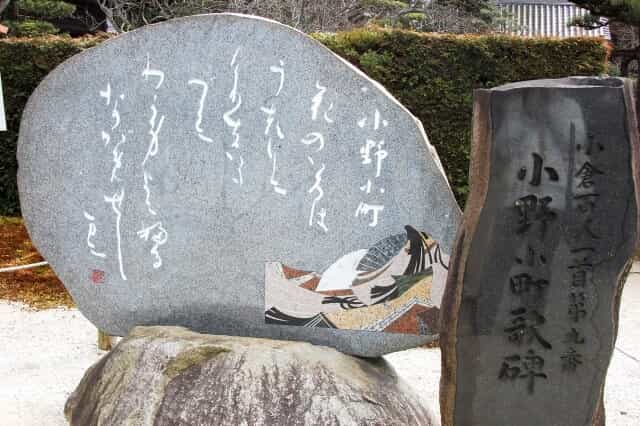 小倉百人一首第九番
小野小町歌碑
小野小町
花のいろは
うつりに
けりないた
づらに
わが身よにふる
ながめせし
まに